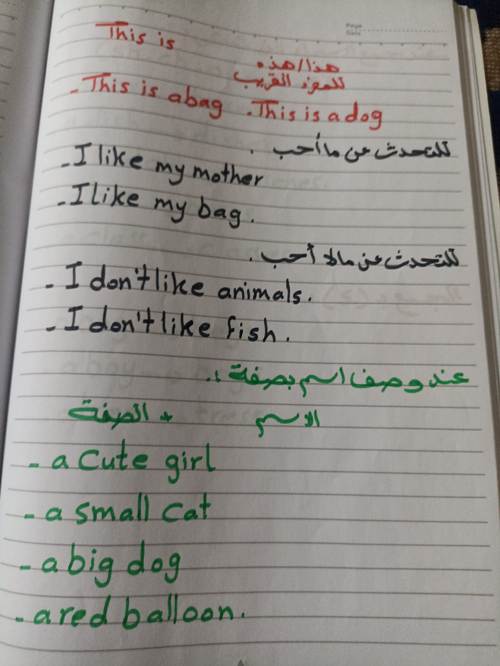 Page
Date
This is
هذا/هذه
للمفرد القريب
- This is a bag - This is a dog
للتحدث عن ما أحب .
- I like my mother
- I like my bag .
للتحدث عن مالا أحب .
- I don't like animals .
- I don't like fish .
عند وصف اسم بصفة :
الصفة + الاسم
- a cute girl
- a small cat
- a big dog
- a red balloon .